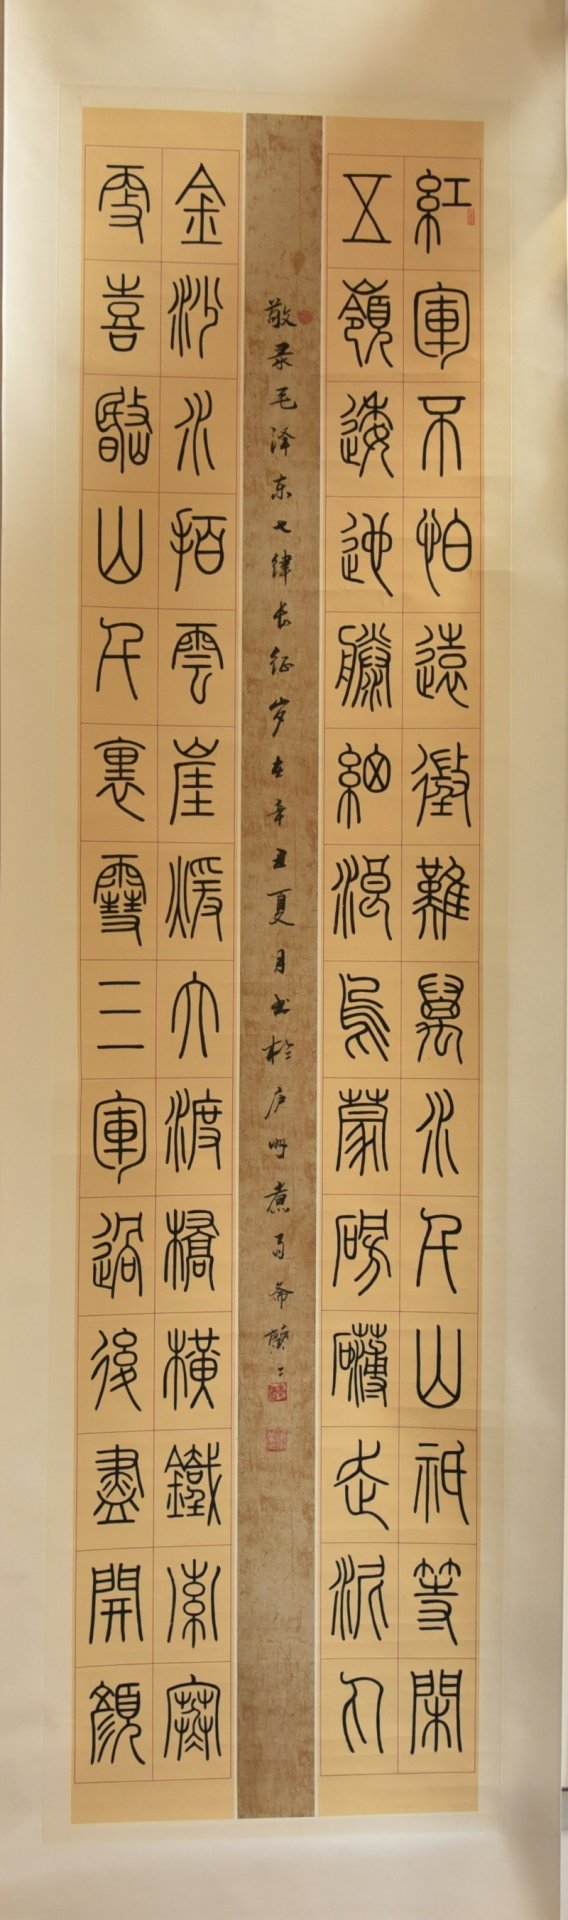 紅軍不怕遠徵難萬水千山祇等閑
五嶺逶迤騰細浪烏蒙磅礴走泥丸
敬录毛泽东七律长征岁在辛丑夏月书於庐州煮斋
金沙水拍雲崖暖大渡橋橫鐵索寒
更喜岷山千裏雪三軍過後盡開顏